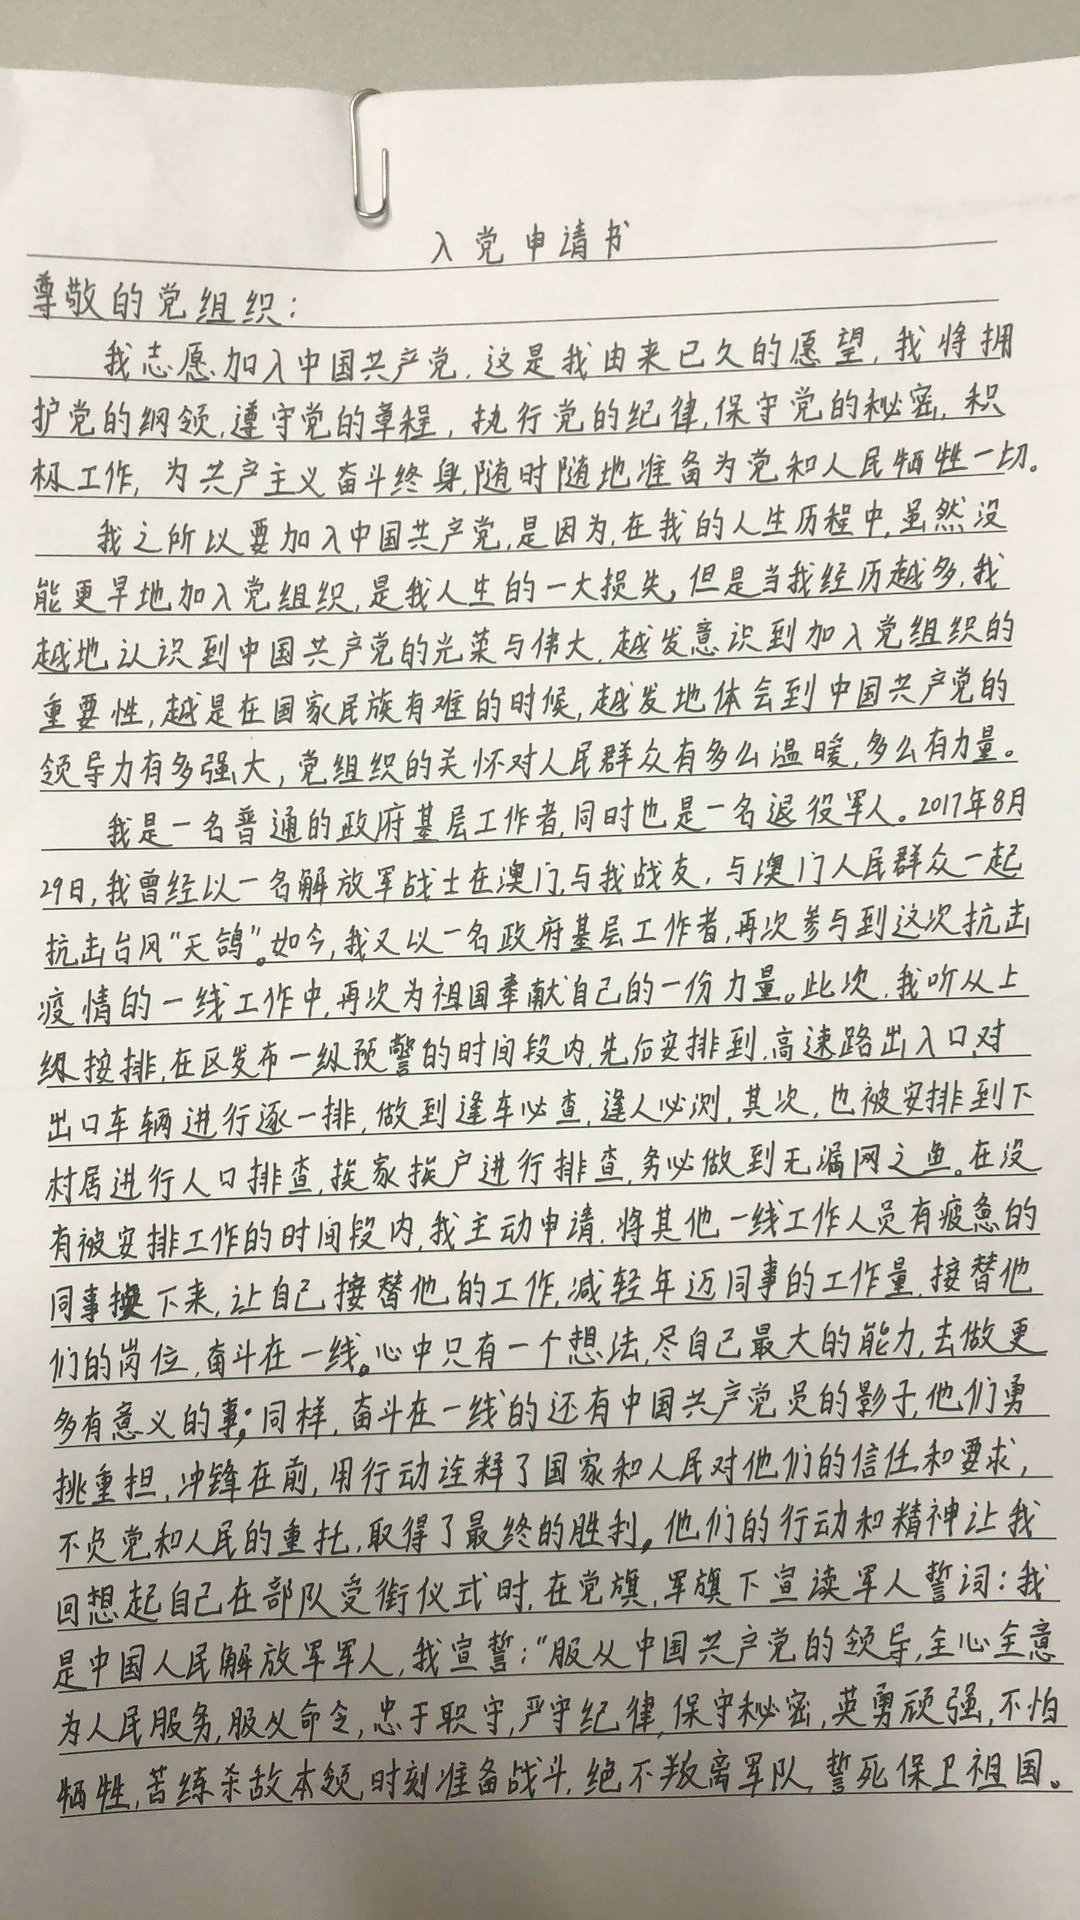 入党申请书
尊敬的党组织：
我志愿加入中国共产党，这是我由来已久的愿望，我将拥
护党的纲领，遵守党的章程，执行党的纪律，保守党的秘密，积
极工作，为共产主义奋斗终身，随时随地准备为党和人民牺牲一切。
我之所以要加入中国共产党，是因为，在我的人生历程中，虽然没
能更早地加入党组织，是我人生的一大损失，但是当我经历越多，我
越地认识到中国共产党的光荣与伟大，越发意识到加入党组织的
重要性，越是在国家民族有难的时候，越发地体会到中国共产党的
领导力有多强大，党组织的关怀对人民群众有多么温暖，多么有力量。
我是一名普通的政府基层工作者，同时也是一名退役军人。2017年8月
29日，我曾经以一名解放军战士在澳门，与我战友，与澳门人民群众一起
抗击台风“天鸽”。如今，我又以一名政府基层工作者，再次参与到这次抗击
疫情的一线工作中，再次为祖国奉献自己的一份力量。此次，我听从上
级按排，在区发布一级预警的时间段内，先后安排到，高速路出入口，对
出口车辆进行逐一排，做到逢车必查，逢人必测，其次，也被安排到下
村居进行人口排查，挨家挨户进行排查，务必做到无漏网之鱼。在没
有被安排工作的时间段内，我主动申请，将其他一线工作人员有疲惫的
同事换下来，让自己接替他的工作，减轻年迈同事的工作量，接替他
们的岗位，奋斗在一线。心中只有一个想法，尽自己最大的能力，去做更
多有意义的事；同样，奋斗在一线的还有中国共产党员的影子，他们勇
挑重担，冲锋在前，用行动诠释了国家和人民对他们的信任和要求，
不负党和人民的重托，取得了最终的胜利，他们的行动和精神让我
回想起自己在部队受衔仪式时，在党旗，军旗下宣读军人誓词：我
是中国人民解放军军人，我宣誓：“服从中国共产党的领导，全心全意
为人民服务，服从命令，忠于职守，严守纪律，保守秘密，英勇顽强，不怕
牺牲，苦练杀敌本领，时刻准备战斗，绝不叛离军队，誓死保卫祖国。